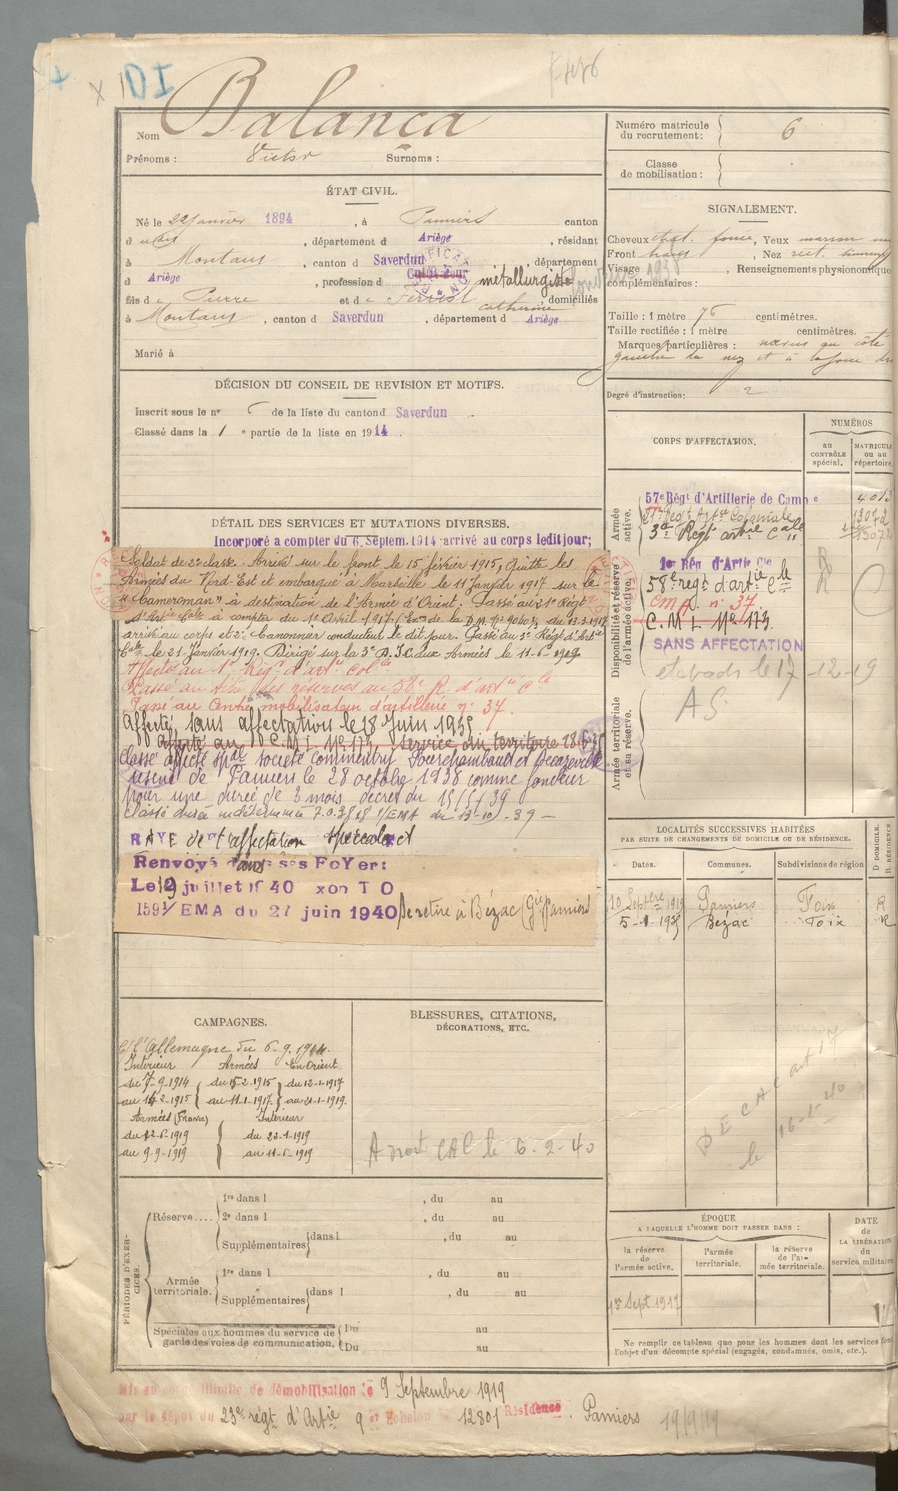 X IDI
Balança
Nom
Prénoms : Victor Surnoms :
ÉTAT CIVIL.
Né le 22 janvier 1894, à Pamiers canton
dudit, département d Ariège, résidant
à Montaut, canton d Saverdun, département
d Ariège, profession d Cultivateur métallurgiste
fils de Pierre et de Ferriol Catherine domiciliés
à Montaut, canton d Saverdun, département d Ariège
Marié à
DÉCISION DU CONSEIL DE REVISION ET MOTIFS.
Inscrit sous le nº 6 de la liste du canton d Saverdun
Classé dans la 1 e partie de la liste en 1914.
DÉTAIL DES SERVICES ET MUTATIONS DIVERSES.
Incorporé a compter du 6 Septem. 1914 arrivé au corps ledit jour;
Soldat de 2e classe. Arrivé sur le front le 15 février 1915, Quitte les
Armées du Nord-Est et embarqué à Marseille le 11 Janvier 1917 sur le
"Cameronian" à destination de l'Armée d'Orient. Passé au 21e Régt
d'Artie Cole à compter du 1er Avril 1917 du 13.3.1917
arrivé au corps et 2e Canonnier conducteur le dit jour. Passé au 3e Régt d'Artie
Cole le 21 Janvier 1919. Dirigé sur la 3e D.I.C. aux Armées le 11-6-1919
Affecté au 1er Régt d'arti Colle
Passé au des réserves au 58e R. d'artie Cle
Passé au Centre mobilisateur d'artillerie nº 37.
Affecté, sans affectation le 18 Juin 1935
Affecté au C.M.I. Nº 173, service du territoire
Classé affecté spal société Commentry Fourchambault et Decazeville
usine de Pamiers le 28 octobre 1938 comme fondeur
pour une durée de 3 mois décret du
Classé durée indéterminée EMA du 13-10-39 -
RAYE de l'affectation spéciale et
Renvoyé dans ses Foyer:
Le 19 juillet 1940
1591/EMA du 27 juin 1940 Se retire à Bézac (Gie Pamiers)
CAMPAGNES.
C/ l'Allemagne du 6-9-1914.
Intérieur Armées En Orient
du 7-9-1914 du 15-2-1915 du 12-1-1917
au 14-2-1915 au 11-1-1917 au 21-1-1919.
Armées (France) Intérieur
du 12-6-1919 du 22-1-1919
au 9-9-1919 au 11-6-1919
BLESSURES, CITATIONS,
DÉCORATIONS, ETC.
CAC le 6-2-40
PÉRIODES D'EXERCICES.
Réserve....
1re dans l, du au
2e dans l, du au
Supplémentaires dans l, du au
au
Armée territoriale.
1re dans l, du au
Supplémentaires dans l, du au
au
Spéciales aux hommes du service de
garde des voies de communication.
Du au
Du au
Mis en congé illimité de démobilisation le 9 Septembre 1919
par le dépôt du 23e régt d'Artie 9 et Echelon 12801 Résidence. Pamiers 19/9/19
Numéro matricule
du recrutement : 6
Classe
de mobilisation :
SIGNALEMENT.
Cheveux chat. foncé, Yeux marron
Front, Nez rect.
Visage, Renseignements physionomiques
complémentaires :
Taille : 1 mètre 76 centimètres.
Taille rectifiée : 1 mètre centimètres.
Marques particulières : nævus au côté
gauche du nez et à la joue
Degré d'instruction : 2
CORPS D'AFFECTATION.
NUMÉROS
au
CONTRÔLE
spécial.
MATRICULE
ou au
répertoire.
Armée active.
57e Régt d'Artillerie de Camp e
21e Régt Artie Coloniale
3e Régt artie Cale
Disponibilité et réserve de l'armée active.
1er Rég d'Artie Cle
58e regt d'artie Cle
CMA nº 37
C.M.I. Nº 173.
SANS AFFECTATION
-12-19
Armée territoriale et sa réserve.
AS
LOCALITÉS SUCCESSIVES HABITÉES
PAR SUITE DE CHANGEMENTS DE DOMICILE OU DE RÉSIDENCE.
Dates. Communes. Subdivisions de région
D DOMICILE. R RÉSIDENCE
10 Septbre 1919 Pamiers Foix R
5-1-1935 Bézac Foix R
le 16-1-40
ÉPOQUE
A LAQUELLE L'HOMME DOIT PASSER DANS :
la réserve
de
l'armée active.
l'armée
territoriale.
la réserve
de l'ar-
mée territoriale.
DATE
de
LA LIBÉRATION
du
service militaire
Sept. 1917
Ne remplir ce tableau que pour les hommes dont les services font
l'objet d'un décompte spécial (engagés, condamnés, omis, etc.).